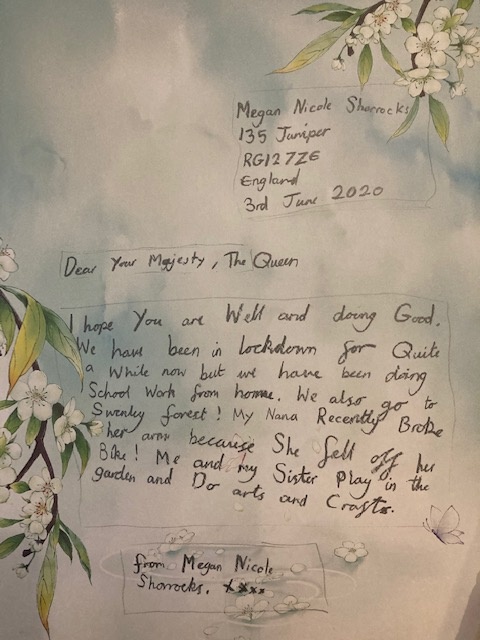 Megan Nicole Shorrocks
135 Juniper
RG12 7ZE
England
3rd June 2020
Dear Your Majesty, The Queen
I hope You are Well and doing Good.
We have been in lockdown for Quite
a While now but we have been doing
School Work from home. We also go to
Swinley forest! My Nana Recently Broke
her arm because She fell off her
Bike! Me and my Sister Play in the
garden and Do arts and Crafts.
from Megan Nicole
Shorrocks. xxxx